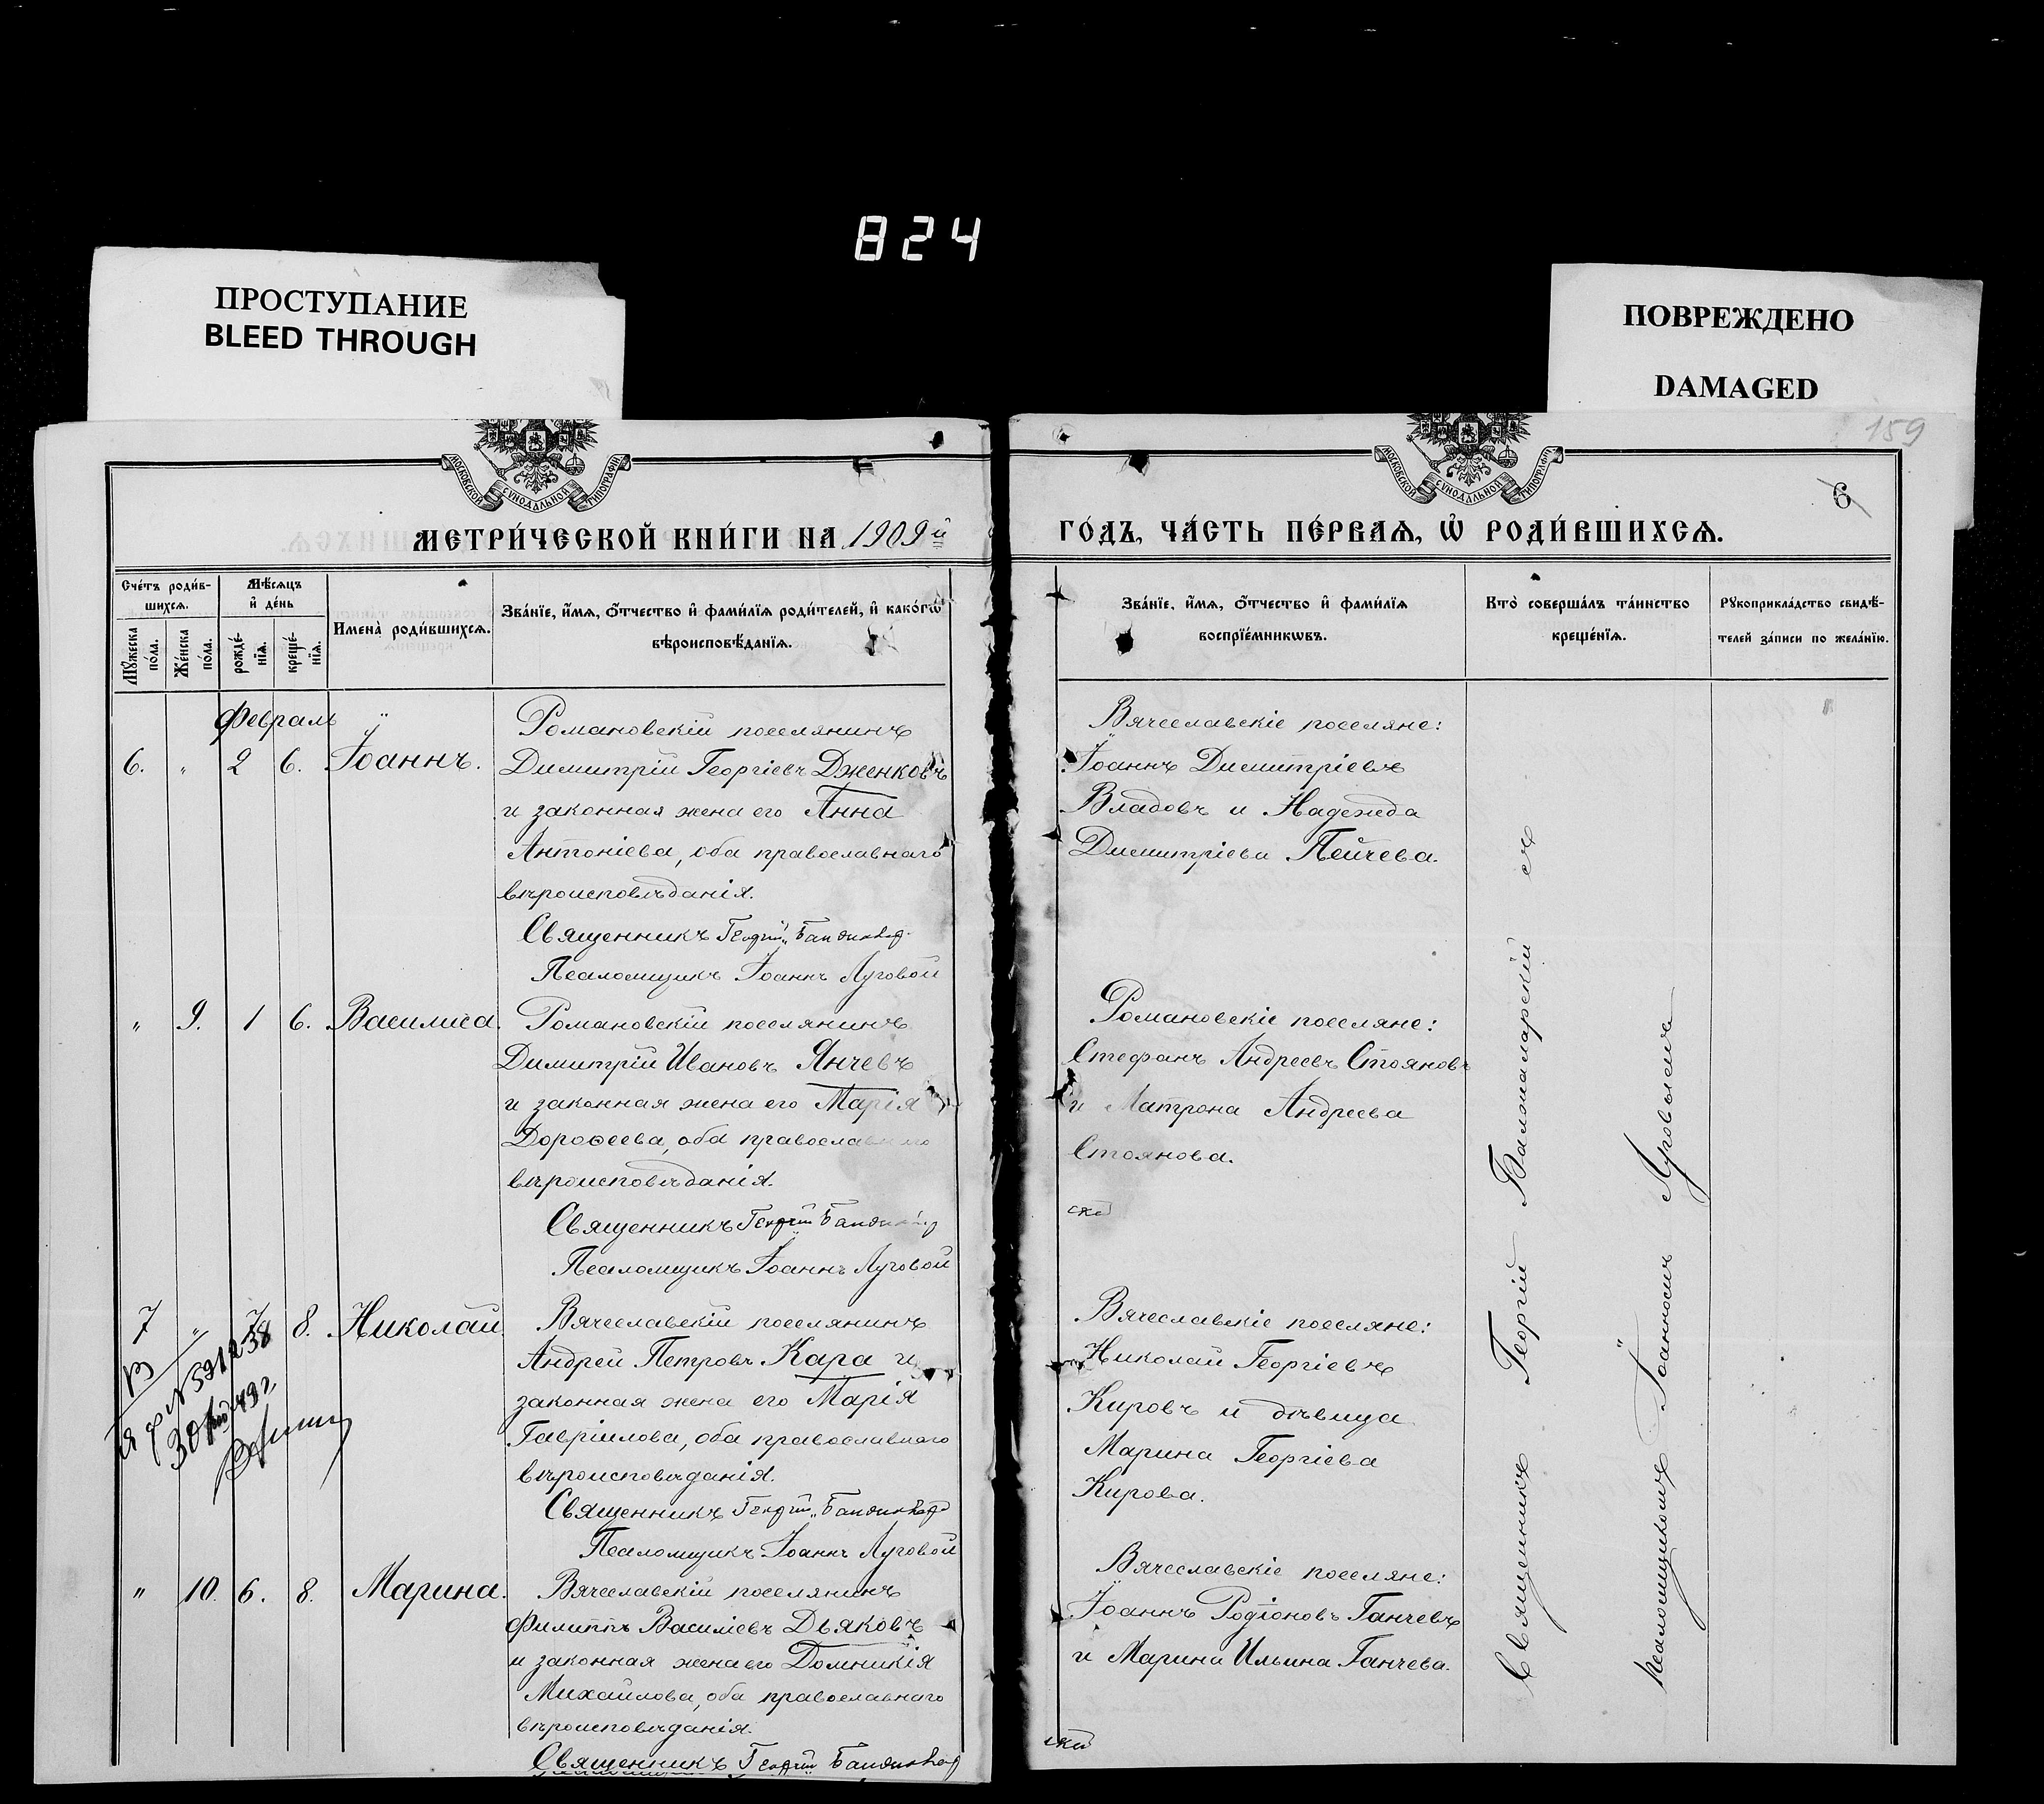 824
ПРОСТУПАНИЕ
BLEED THROUGH
ПОВРЕЖДЕНО
DAMAGED
159
МОСКОВСКОЙ СУНОДАЛЬНОЙ ТИПОГРАФІИ
МОСКОВСКОЙ СУНОДАЛЬНОЙ ТИПОГРАФІИ
6
МЕТРИ́ЧЕСКОЙ КНИ́ГИ НА 1909й
ГО́ДЪ, ЧА́СТЬ ПЕ́РВАѦ, Ѡ҆ РОДИ́ВШИХСѦ.
Сче́тъ роди́в-
шихсѧ.
Мѣ́сѧцъ
и҆ де́нь
Мꙋ́жеска
по́ла.
Же́нска
по́ла.
рожде́-
нїѧ.
креще́-
нїѧ.
Имена̀ роди́вшихсѧ.
Зва́нїе, и҆́мѧ, ѻ҆́тчество и҆ фами́лїѧ роди́телей, и҆ како́гѡ
вѣроисповѣ́данїѧ.
Зва́нїе, и҆́мѧ, ѻ҆́тчество и҆ фами́лїѧ
воспрїе́мникѡвъ.
Кто̀ соверша́лъ та́инство
креще́нїѧ.
Рꙋкоприкла́дство свидѣ́-
телей за́писи по жела́нїю.
Февраль
6. " 2 6. Іоаннъ.
Романовскій поселянинъ
Димитрій Георгіевъ Дженковъ
и законная жена его Анна
Антоніева, оба православнаго
вѣроисповѣданія.
Священникъ Георгій
Псаломщикъ Іоаннъ Луговой
Вячеславскіе поселяне:
Іоаннъ Димитріевъ
Владовъ и Надежда
Димитріева Пейчева.
" 9. 1 6. Василиса.
Романовскій поселянинъ
Димитрій Ивановъ Янчевъ
и законная жена его Марія
Дороѳеева, оба православнаго
вѣроисповѣданія.
Священникъ Георгій
Псаломщикъ Іоаннъ Луговой
Романовскіе поселяне:
Стефанъ Андреевъ Стояновъ
и Матрона Андреева
Стоянова.
7 " 7 8. Николай.
Вячеславскій поселянинъ
Андрей Петровъ Кара и
законная жена его Марія
Гавріилова, оба православнаго
вѣроисповѣданія.
Священникъ Георгій
Псаломщикъ Іоаннъ Луговой
Вячеславскіе поселяне:
Николай Георгіевъ
Кировъ и дѣвица
Марина Георгіева
Кирова.
" 10. 6. 8. Марина.
Вячеславскій поселянинъ
Филиппъ Василіевъ Дьяковъ
и законная жена его Домникія
Михайлова, оба православнаго
вѣроисповѣданія.
Священникъ Георгій
Вячеславскіе поселяне:
Іоаннъ Родіоновъ Ганчевъ
и Марина Ильина Ганчева.
Священникъ Георгій съ
псаломщикомъ Іоанномъ Луговымъ